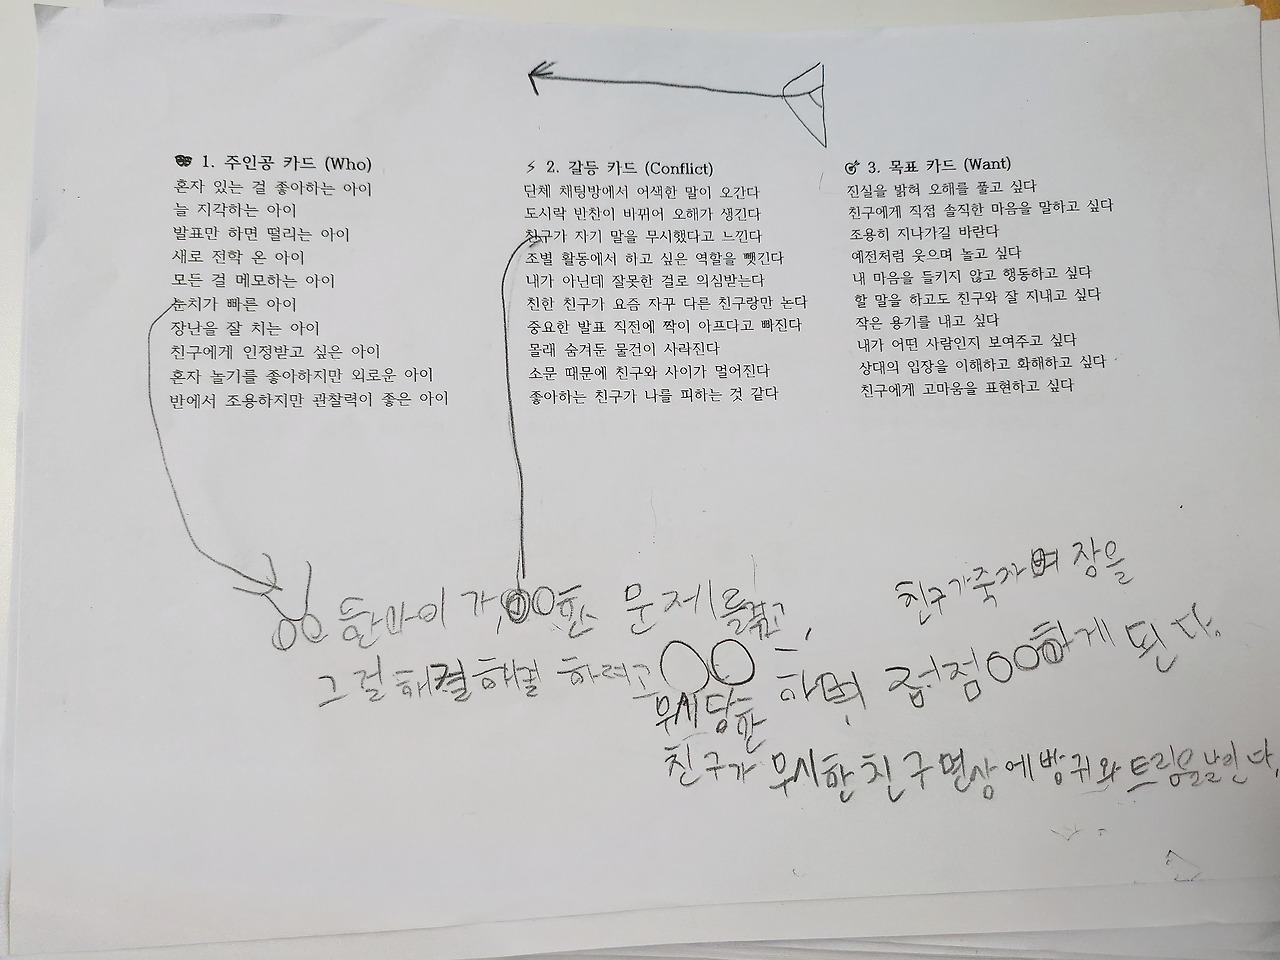 1. 주인공 카드 (Who)
혼자 있는 걸 좋아하는 아이
늘 지각하는 아이
발표만 하면 떨리는 아이
새로 전학 온 아이
모든 걸 메모하는 아이
눈치가 빠른 아이
장난을 잘 치는 아이
친구에게 인정받고 싶은 아이
혼자 놀기를 좋아하지만 외로운 아이
반에서 조용하지만 관찰력이 좋은 아이
2. 갈등 카드 (Conflict)
단체 채팅방에서 어색한 말이 오간다
도시락 반찬이 바뀌어 오해가 생긴다
친구가 자기 말을 무시했다고 느낀다
조별 활동에서 하고 싶은 역할을 뺏긴다
내가 아닌데 잘못한 걸로 의심받는다
친한 친구가 요즘 자꾸 다른 친구랑만 논다
중요한 발표 직전에 짝이 아프다고 빠진다
몰래 숨겨둔 물건이 사라진다
소문 때문에 친구와 사이가 멀어진다
좋아하는 친구가 나를 피하는 것 같다
3. 목표 카드 (Want)
진실을 밝혀 오해를 풀고 싶다
친구에게 직접 솔직한 마음을 말하고 싶다
조용히 지나가길 바란다
예전처럼 웃으며 놀고 싶다
내 마음을 들키지 않고 행동하고 싶다
할 말을 하고도 친구와 잘 지내고 싶다
작은 용기를 내고 싶다
내가 어떤 사람인지 보여주고 싶다
상대의 입장을 이해하고 화해하고 싶다
친구에게 고마움을 표현하고 싶다
한 아이가, OO한 문제를 겪고,
친구가 죽자 장을
그걸 해결 해결 하려고 OO 하며, 점점 OOO하게 된다.
무시당한
친구가 무시한 친구 면상에 방귀와 트림을 날린다,